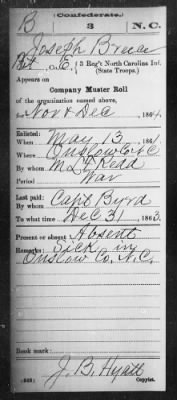 (Confederate.)
B 3 N.C.
Joseph Brewer
Pvt, Co. E, 3 Reg't North Carolina Inf.
(State Troops.)
Appears on
Company Muster Roll
of the organization named above,
for Nov & Dec, 1864.
Enlisted:
When May 13, 1861
Where Onslow Co N.C
By whom M. L. F. Redd
Period War
Last paid:
By whom Capt Byrd
To what time Dec 31, 1863.
Present or absent Absent
Remarks: Sick in
Onslow Co, N.C.
Book mark:
J. B. Hyatt
(642) Copyist.